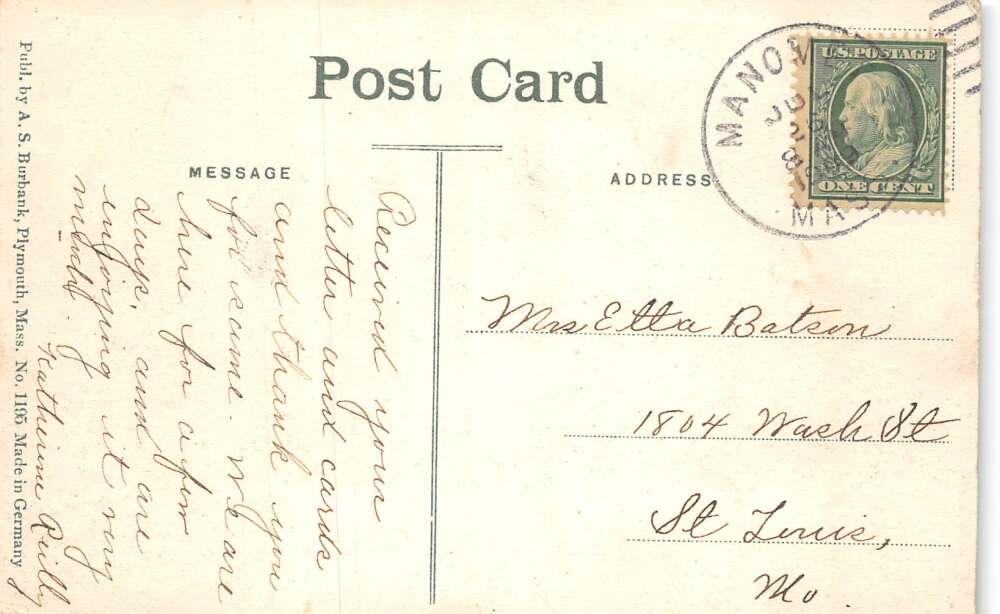 Post Card
MESSAGE
ADDRESS
Received your
letter and cards
and thank you
for same. We are
here for a few
days, and are
enjoying it very
much.
Katherine Reilly
Mrs Etta Batson
1804 Wash St
St Louis,
Mo.
U.S. POSTAGE
ONE CENT
MANOM
MAS
Publ. by A. S. Burbank, Plymouth, Mass. No. 1195 Made in Germany